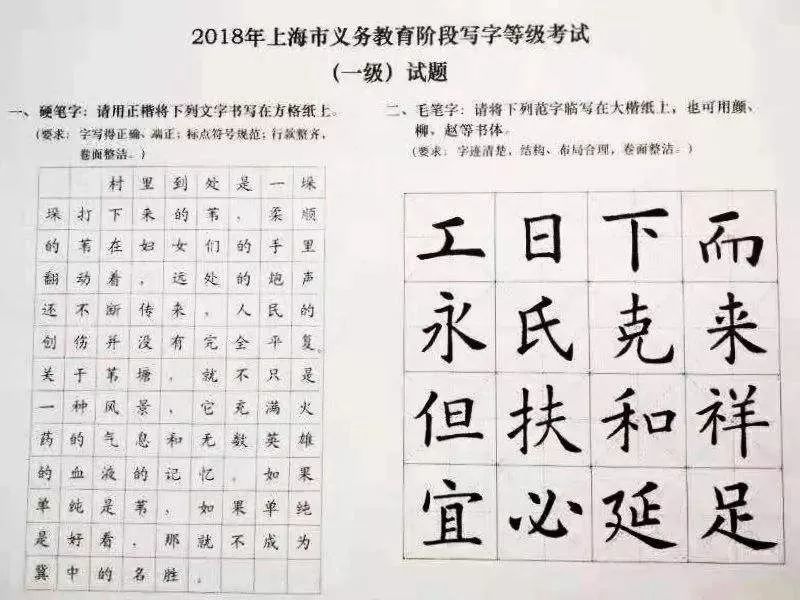 2018年上海市义务教育阶段写字等级考试
（一级）试题
一、硬笔字：请用正楷将下列文字书写在方格纸上。
（要求：字写得正确、端正；标点符号规范；行款整齐，
卷面整洁。）
村里到处是一垛
垛打下来的苇，柔顺
的苇在妇女们的手里
翻动着，远处的炮声
还不断传来，人民的
创伤并没有完全平复。
关于苇塘，就不只是
一种风景，它充满火
药的气息和无数英雄
的血液的记忆。如果
单纯是苇，如果单纯
是好看，那就不成为
冀中的名胜。
二、毛笔字：请将下列范字临写在大楷纸上，也可用颜、
柳、赵等书体。
（要求：字迹清楚，结构、布局合理，卷面整洁。）
工日下而
永氏克来
但扶和祥
宜必延足